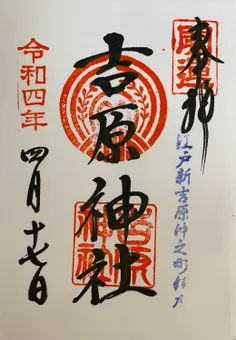 奉拝
開運
江戸新吉原仲之町
吉原神社
吉原神社
令和四年
四月十七日